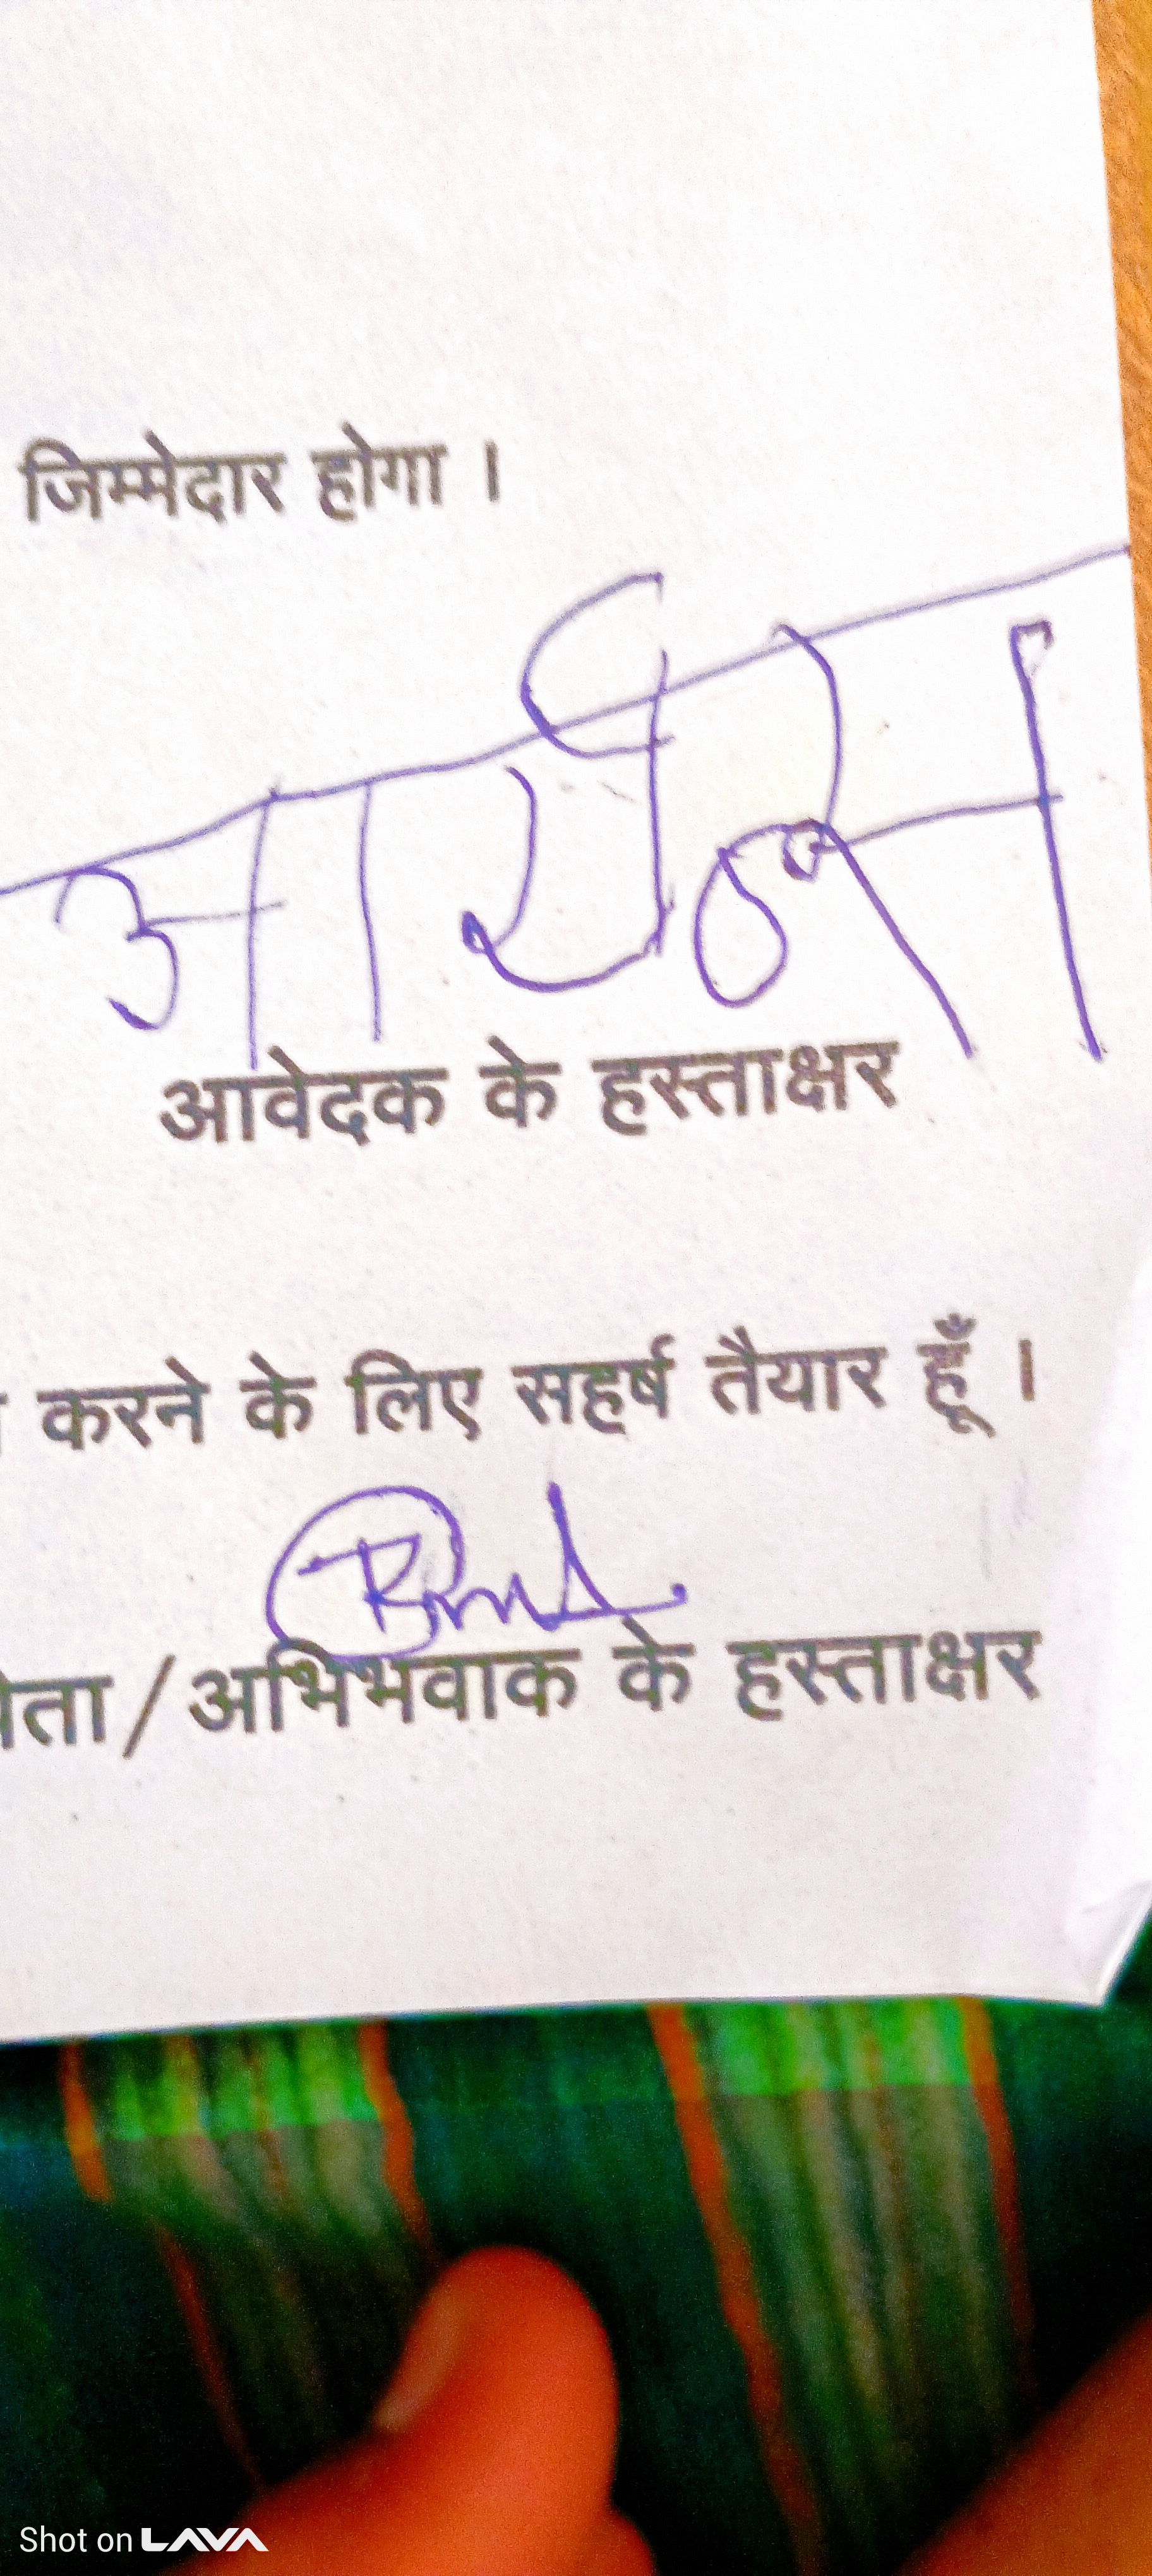 जिम्मेदार होगा ।
आर्यन्स
आवेदक के हस्ताक्षर
करने के लिए सहर्ष तैयार हूँ ।
/अभिभवाक के हस्ताक्षर
Shot on LAVA